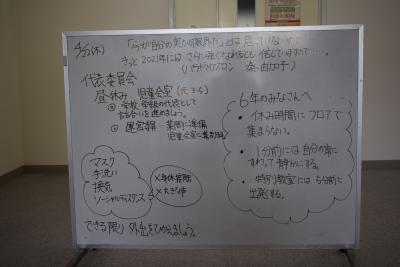 4/22(木)
「今が自分の実力の限界だ」とは思っていない。
きっと2021年にはさらに強くなれると信じていますので…。
(パラトライアスロン 秦由加子)
代表委員会
昼休み 児童会室(元2-5)
学校、学級の代表として
話合いを進めましょう。
運営の 昼間に準備
児童会室に集まれ
マスク
手洗い
換気
ソーシャルディスタンス
×身体接触
×大きな声
できる限り 外出をひかえましょう。
6年のみなさんへ
・休み時間にフロアで
集まらない。
・1分前には自分の席に
すわって静かにする。
・特別教室には5分前に
出発する。